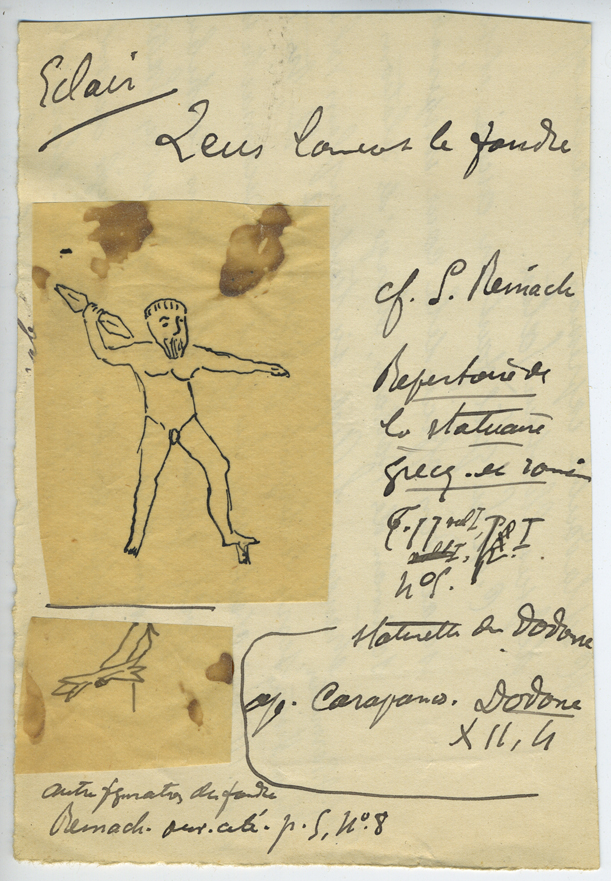 Eclair
Zeus lançant le foudre
cf. S. Reinach
Repertoire de
la statuaire
grecq. et romain
T. II vol I,
p. I
n° 5.
statuette de Dodone
ap. Carapanos. Dodone
XII, 4
autre figuration du foudre
Reinach. ouv. cité. p. 5, N°. 8